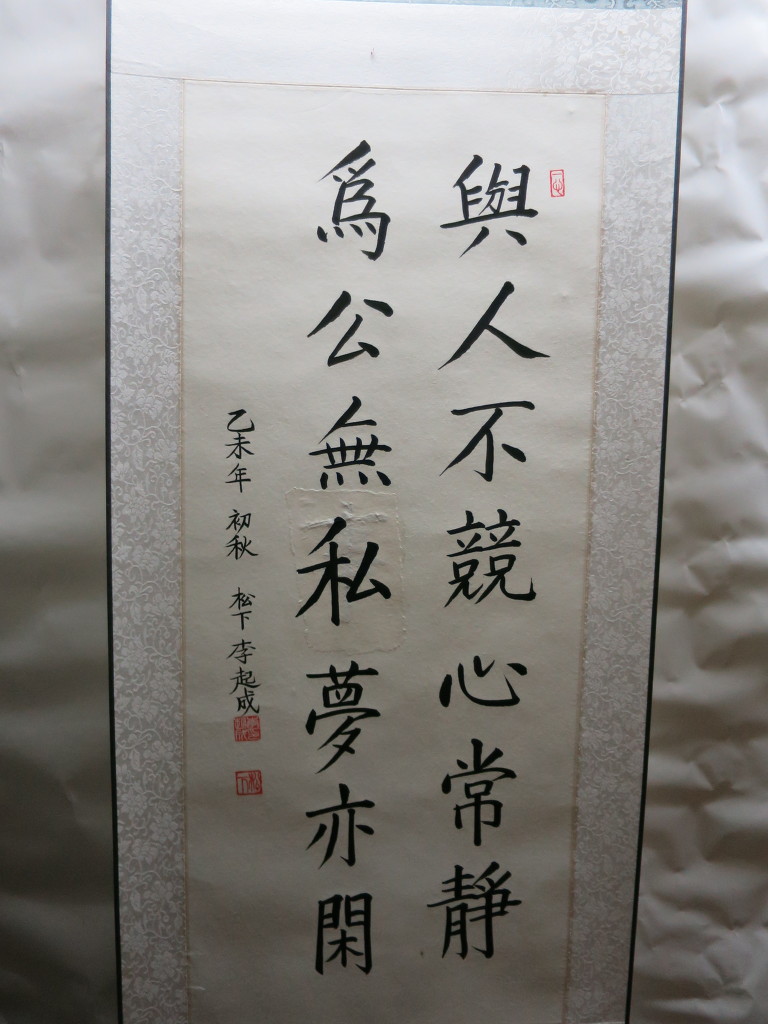 與人不競心常靜
爲公無私夢亦閑
乙未年 初秋 松下 李起成